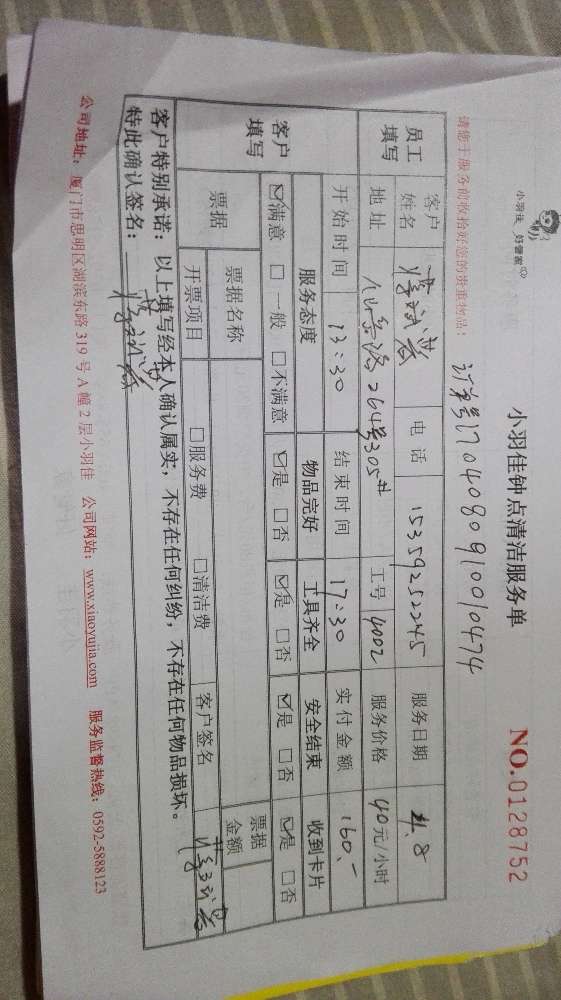 小羽佳 好管家
小羽佳钟点清洁服务单
NO.0128752
请您于服务前收拾好您的贵重物品！
订单号1704080910010474
员工填写 客户姓名 电话 15359252245 服务日期 4.8
地址 264号305# 工号 4002 服务价格 40元/小时
开始时间 13:30 结束时间 17:30 实付金额 160.-
客户填写 服务态度 物品完好 工具齐全 安全结束 收到卡片
☑满意 □一般 □不满意 ☑是 □否 ☑是 □否 ☑是 □否 ☑是 □否
票据 票据名称 票据金额
开票项目 □服务费 □清洁费 客户签名
客户特别承诺：以上填写经本人确认属实，不存在任何纠纷，不存在任何物品损坏。
特此确认签名：
公司地址：厦门市思明区湖滨东路 319 号 A 幢 2 层小羽佳 公司网站：www.xiaoyujia.com 服务监督热线：0592-5888123